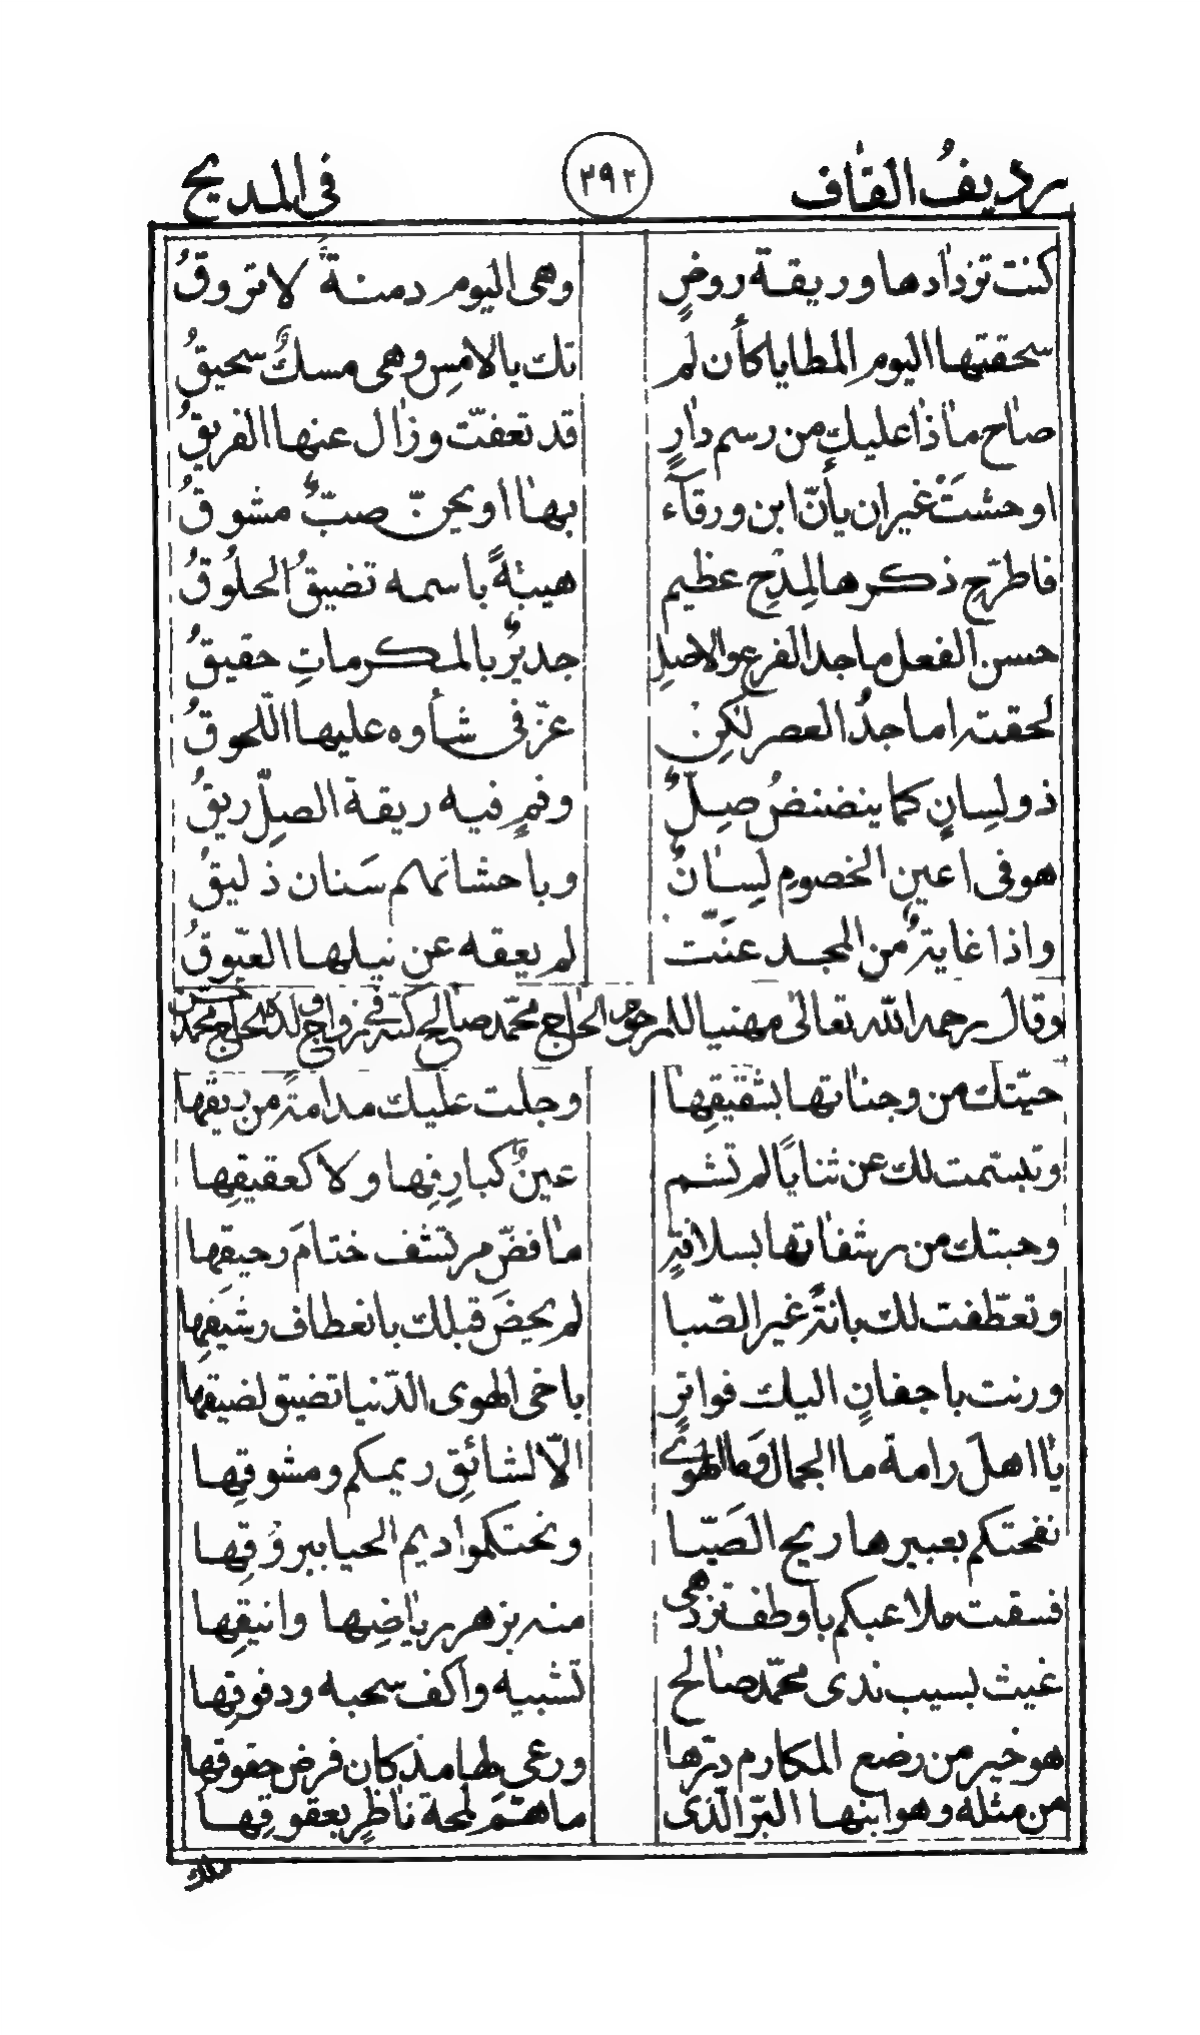 رديفُ القاف ٢٩٢ في المديح
كنت تزدادها وريقة روضٍ وهي اليوم دمنةٌ لا تروقُ
سحقتها اليوم المطايا كأن لم تك بالامسِ وهي مسكٌ سحيقُ
صاح ماذا عليك من رسم دارٍ قد تعفّت وزال عنها الفريقُ
اوحشتْ غير ان يأنّ ابن ورقآء بها او يحنّ صبٌّ مشوقُ
فاطّرح ذكرها لمدح عظيم هيبةً باسمه تضيقُ الحلُوقُ
حسن الفعل ماجد الفرع والاصلِ جديرٌ بالمكرماتِ حقيقُ
لحقته اماجدُ العصر لكن عزّ في شأوه عليها اللّحوقُ
ذو لسِانٍ كما ينضنضُ صِلٌّ وفمٍ فيه ريقة الصلِّ ريقُ
هو في اعينِ الخصومِ لِسانٌ وباحشائهم سَنان ذليقُ
واذا غايةٌ من المجد عنّت لم يعقه عن نيلها العيّوقُ
وقال رحمه الله تعالى مهنيا للمرحوم الحاج محمّد صالح كبّه في زواج ولده الحاج محمّد حسن
حيّتك من وجناتها بشقيقِها وجلت عليك مدامةً من ريقها
وتبسّمت لك عن ثنايًا لم تشم عينٌ كبارِقِها ولا كعقيقِها
وحبتك من رشفاتها بسلافةٍ ما فضّ مرتشف ختامَ رحيقِها
وتعطّفت لك بانةٌ غير الصّبا لم يحضَ قبلك بانعطاف رشيقِها
ورنت باجفانٍ اليك فواترٍ باخي الهوى الدّنيا تضيق لضيقها
يا اهلَ رامة ما الجمال وما الهوى الّا لشائِق ريمكم ومشوقِها
نفحتكم بعبيرها ريح الصَبّا ونحتكموا ديم الحيا ببروُقِها
فسقت ملاعبكم باوطف تزدهي منه بزهر رياضِها وانيقِها
غيث بسيب ندى محمّد صالح تشبيه واكف سحبه ودفوقِها
هو خير من رضع المكارم درّها ورعى لها مذ كان فرض حقوقها
من مثله وهو ابنها البرّ الّذي ما همّ لمحة ناظِرٍ بعقوقِها
ملك